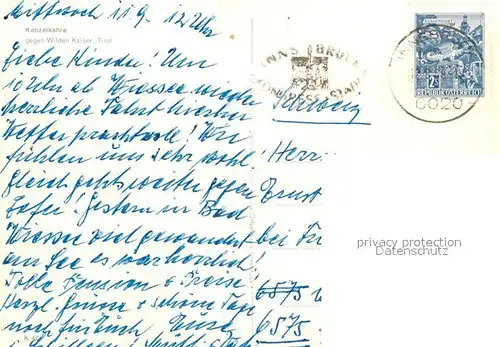 Mittwoch 11.9. 12 Uhr
Kanzelkehre
gegen Wilden Kaiser, Tirol
Liebe Kinder! Um
10 Uhr ab Wiessee wieder
herrliche Fahrt hierher
Wetter prachtvoll! Wir
fühlen uns sehr wohl!
Gleich gehts weiter gegen
Lofer! Gestern in Bad
Wiessee viel gewandert
am See es war herrlich!
Tolle Pension + Preise
Herzl. Grüsse + schöne Tage
noch für Euch
INNSBRUCK
REPUBLIK ÖSTERREICH
6020
Schweiz
Herr
Ernst
bei
6575
6575
privacy protection
Datenschutz